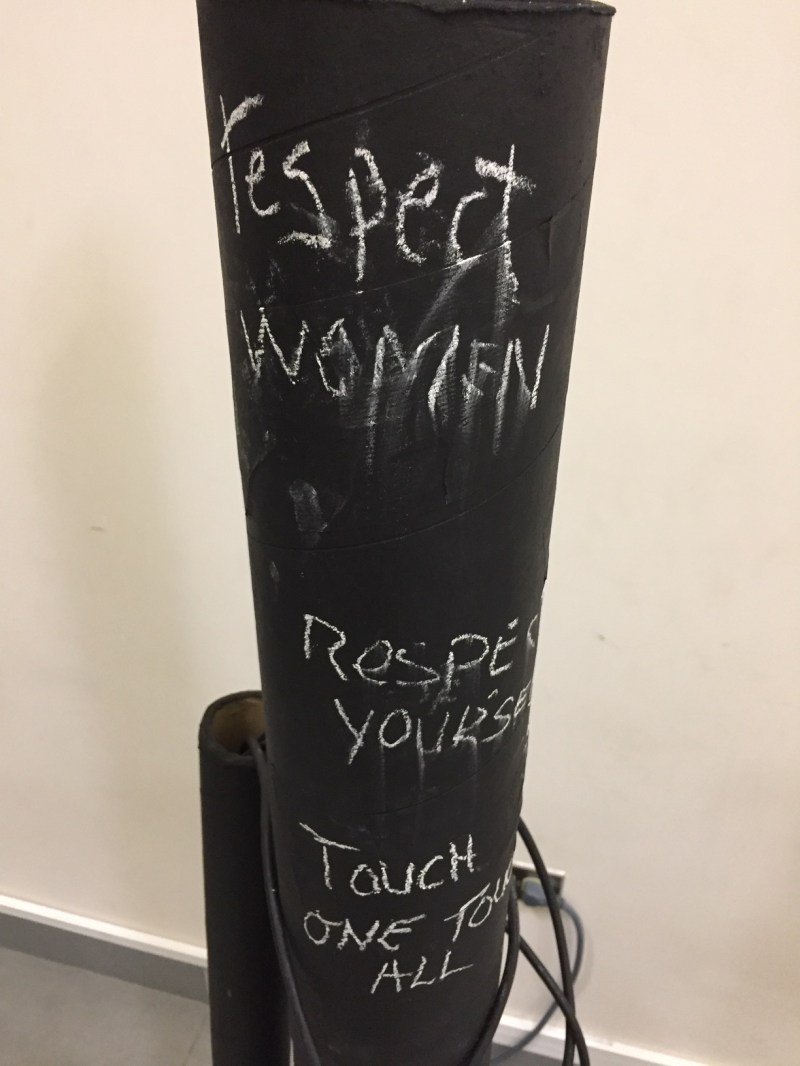 respect
WOMEN
RESPEC
YOURSE
TOUCH
ONE TOU
ALL